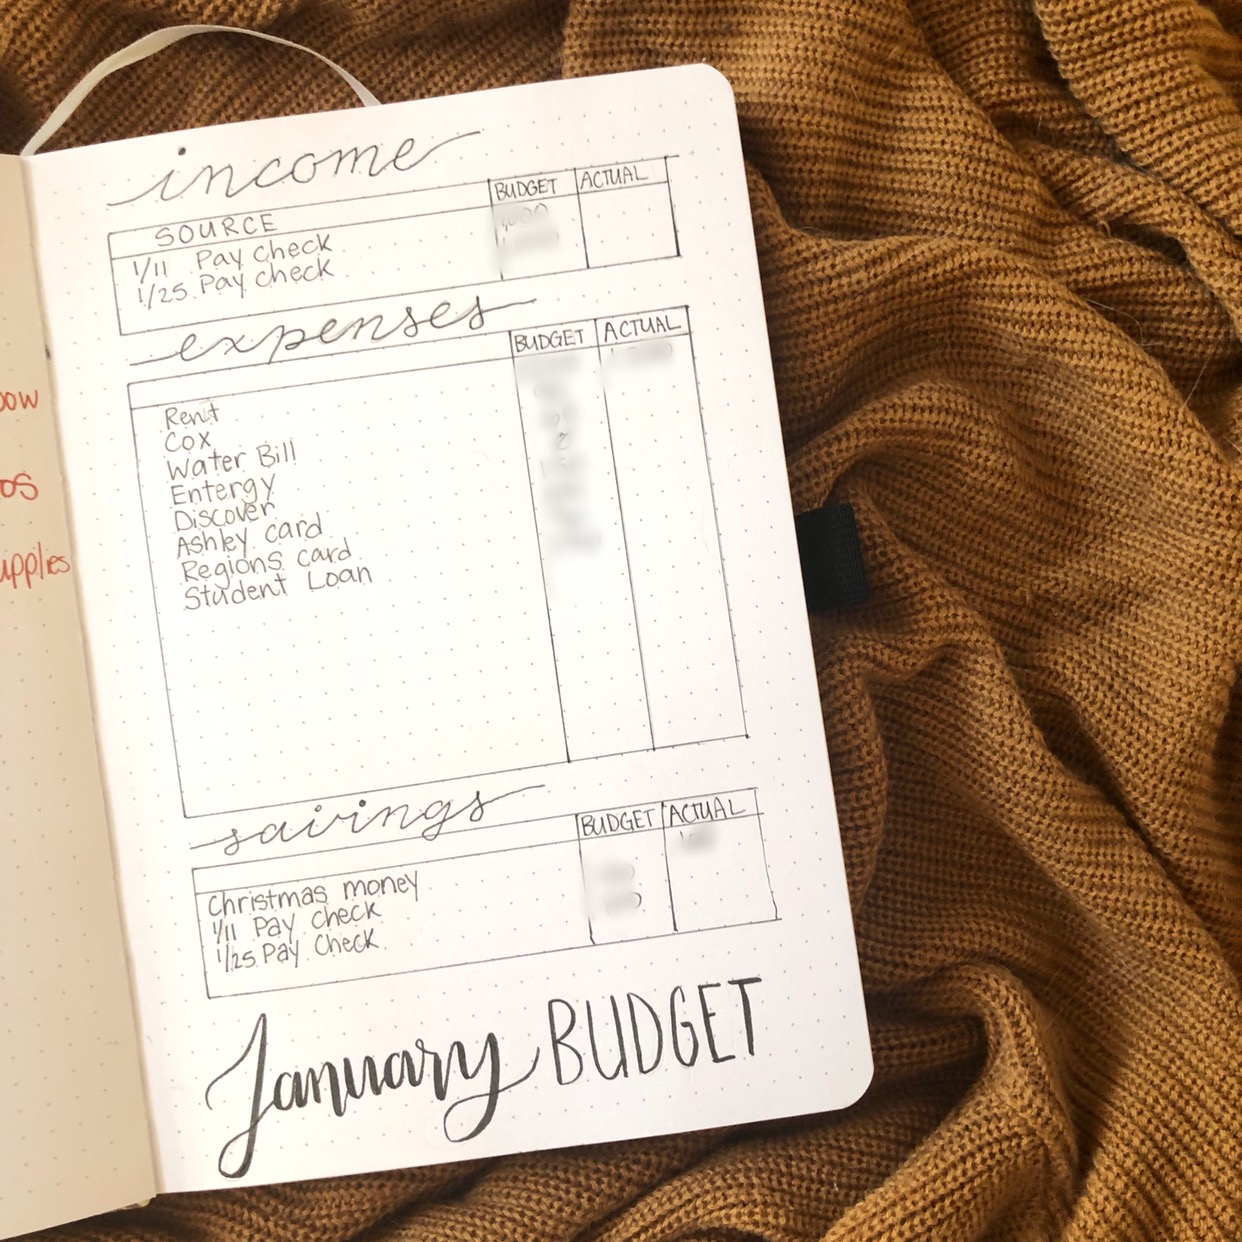 income
BUDGET ACTUAL
SOURCE
1/11 Pay Check
1/25 Pay Check
expenses
BUDGET ACTUAL
Rent
Cox
Water Bill
Entergy
Discover
Ashley card
Regions card
Student Loan
savings
BUDGET ACTUAL
Christmas money
1/11 Pay Check
1/25 Pay Check
January BUDGET